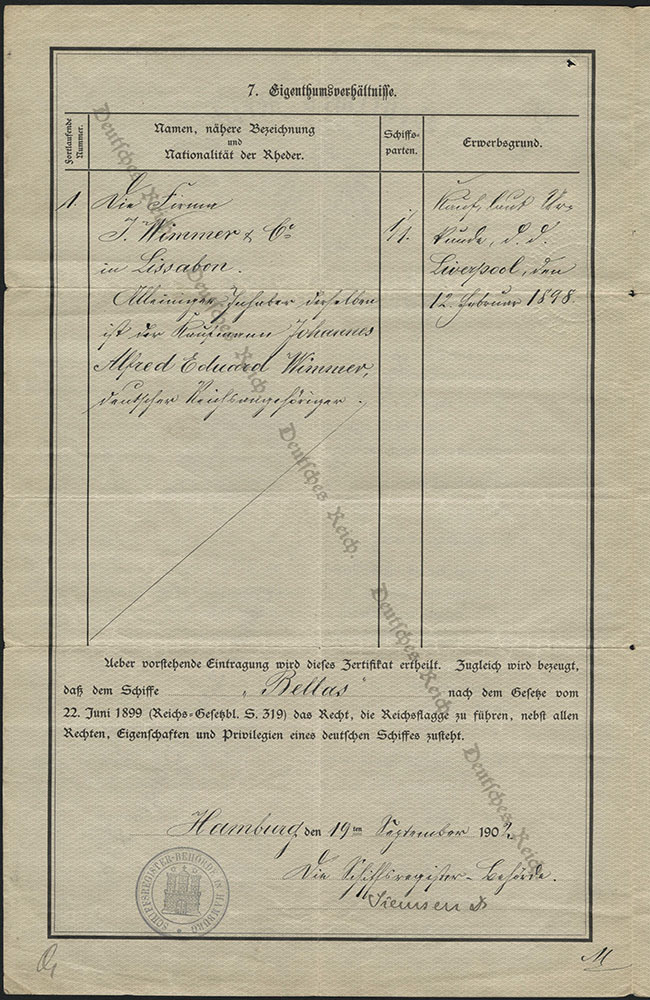 7. Eigenthumsverhältnisse.
Fortlaufende Nummer.
Namen, nähere Bezeichnung
und
Nationalität der Rheder.
Schiffs-
parten.
Erwerbsgrund.
1. Die Firma
J. Wimmer & Co
in Lissabon.
Alleiniger Inhaber derselben
ist der Kaufmann Johannes
Alfred Eduard Wimmer,
deutscher Reichsangehöriger.
1/1.
Kauf, laut Ur-
kunde, d. d.
Liverpool, den
12. Februar 1898.
Ueber vorstehende Eintragung wird dieses Zertifikat ertheilt. Zugleich wird bezeugt,
daß dem Schiffe "Bellas" nach dem Gesetze vom
22. Juni 1899 (Reichs-Gesetzbl. S. 319) das Recht, die Reichsflagge zu führen, nebst allen
Rechten, Eigenschaften und Privilegien eines deutschen Schiffes zusteht.
Hamburg, den 19ten September 1902.
Die Schiffsregister-Behörde.
Siemsen
SCHIFFSREGISTER-BEHÖRDE IN HAMBURG
Deutsches Reich.
Deutsches Reich.
Deutsches Reich.
Deutsches Reich.
Deutsches Reich.